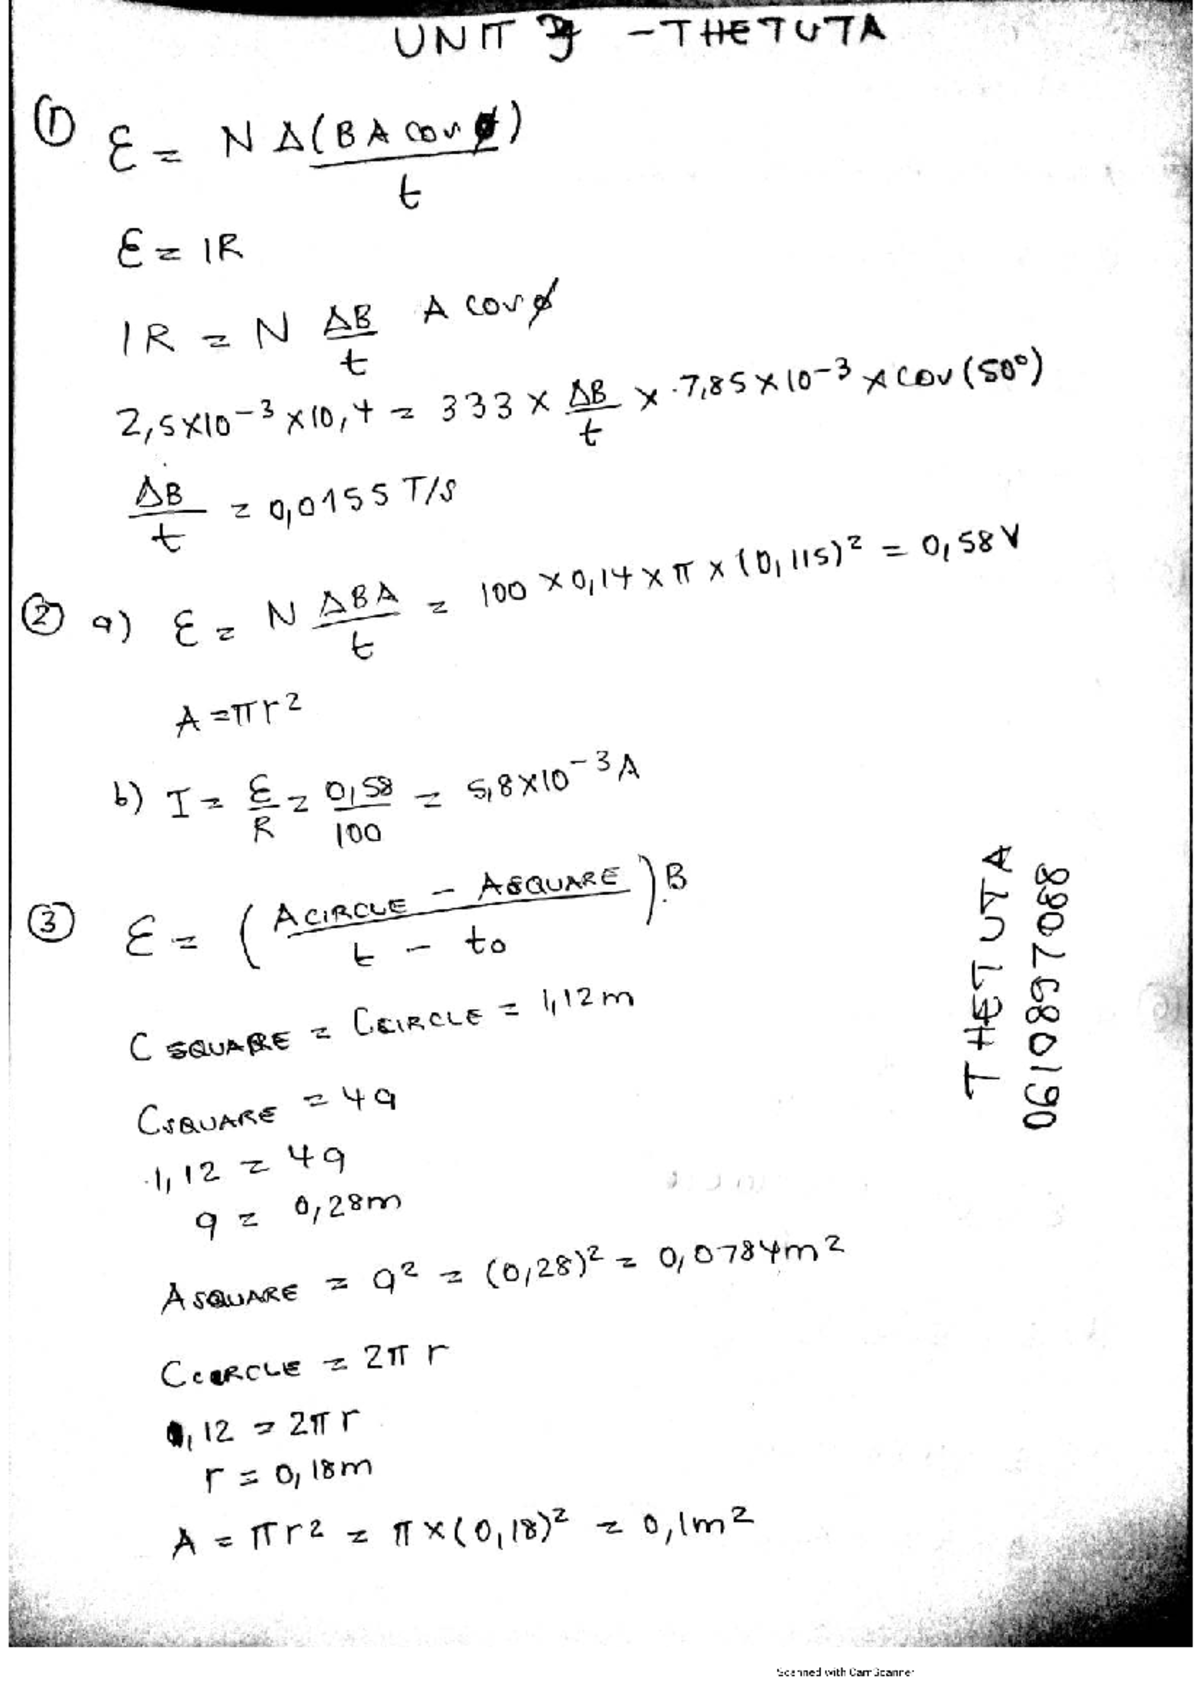 UNIT - THETUTA
① ε = N Δ(BA cos φ)
t
ε = IR
IR = N ΔB/t A cos φ
2,5×10-3 ×10,4 = 333 × ΔB/t × 7,85×10-3 × cos(50°)
ΔB/t = 0,0155 T/s
② a) ε = N ΔBA/t = 100 × 0,14 × π × (0,115)² = 0,58 V
A = πr²
b) I = ε/R = 0,58/100 = 5,8×10-3 A
③ ε = (ACIRCLE - ASQUARE / t - to).B
C SQUARE = CCIRCLE = 1,12m
CSQUARE = 4a
1,12 = 4a
a = 0,28m
ASQUARE = a² = (0,28)² = 0,0784m²
CCIRCLE = 2πr
1,12 = 2πr
r = 0,18m
A = πr² = π×(0,18)² = 0,1m²
THETUTA
0610897088
Scanned with CamScanner